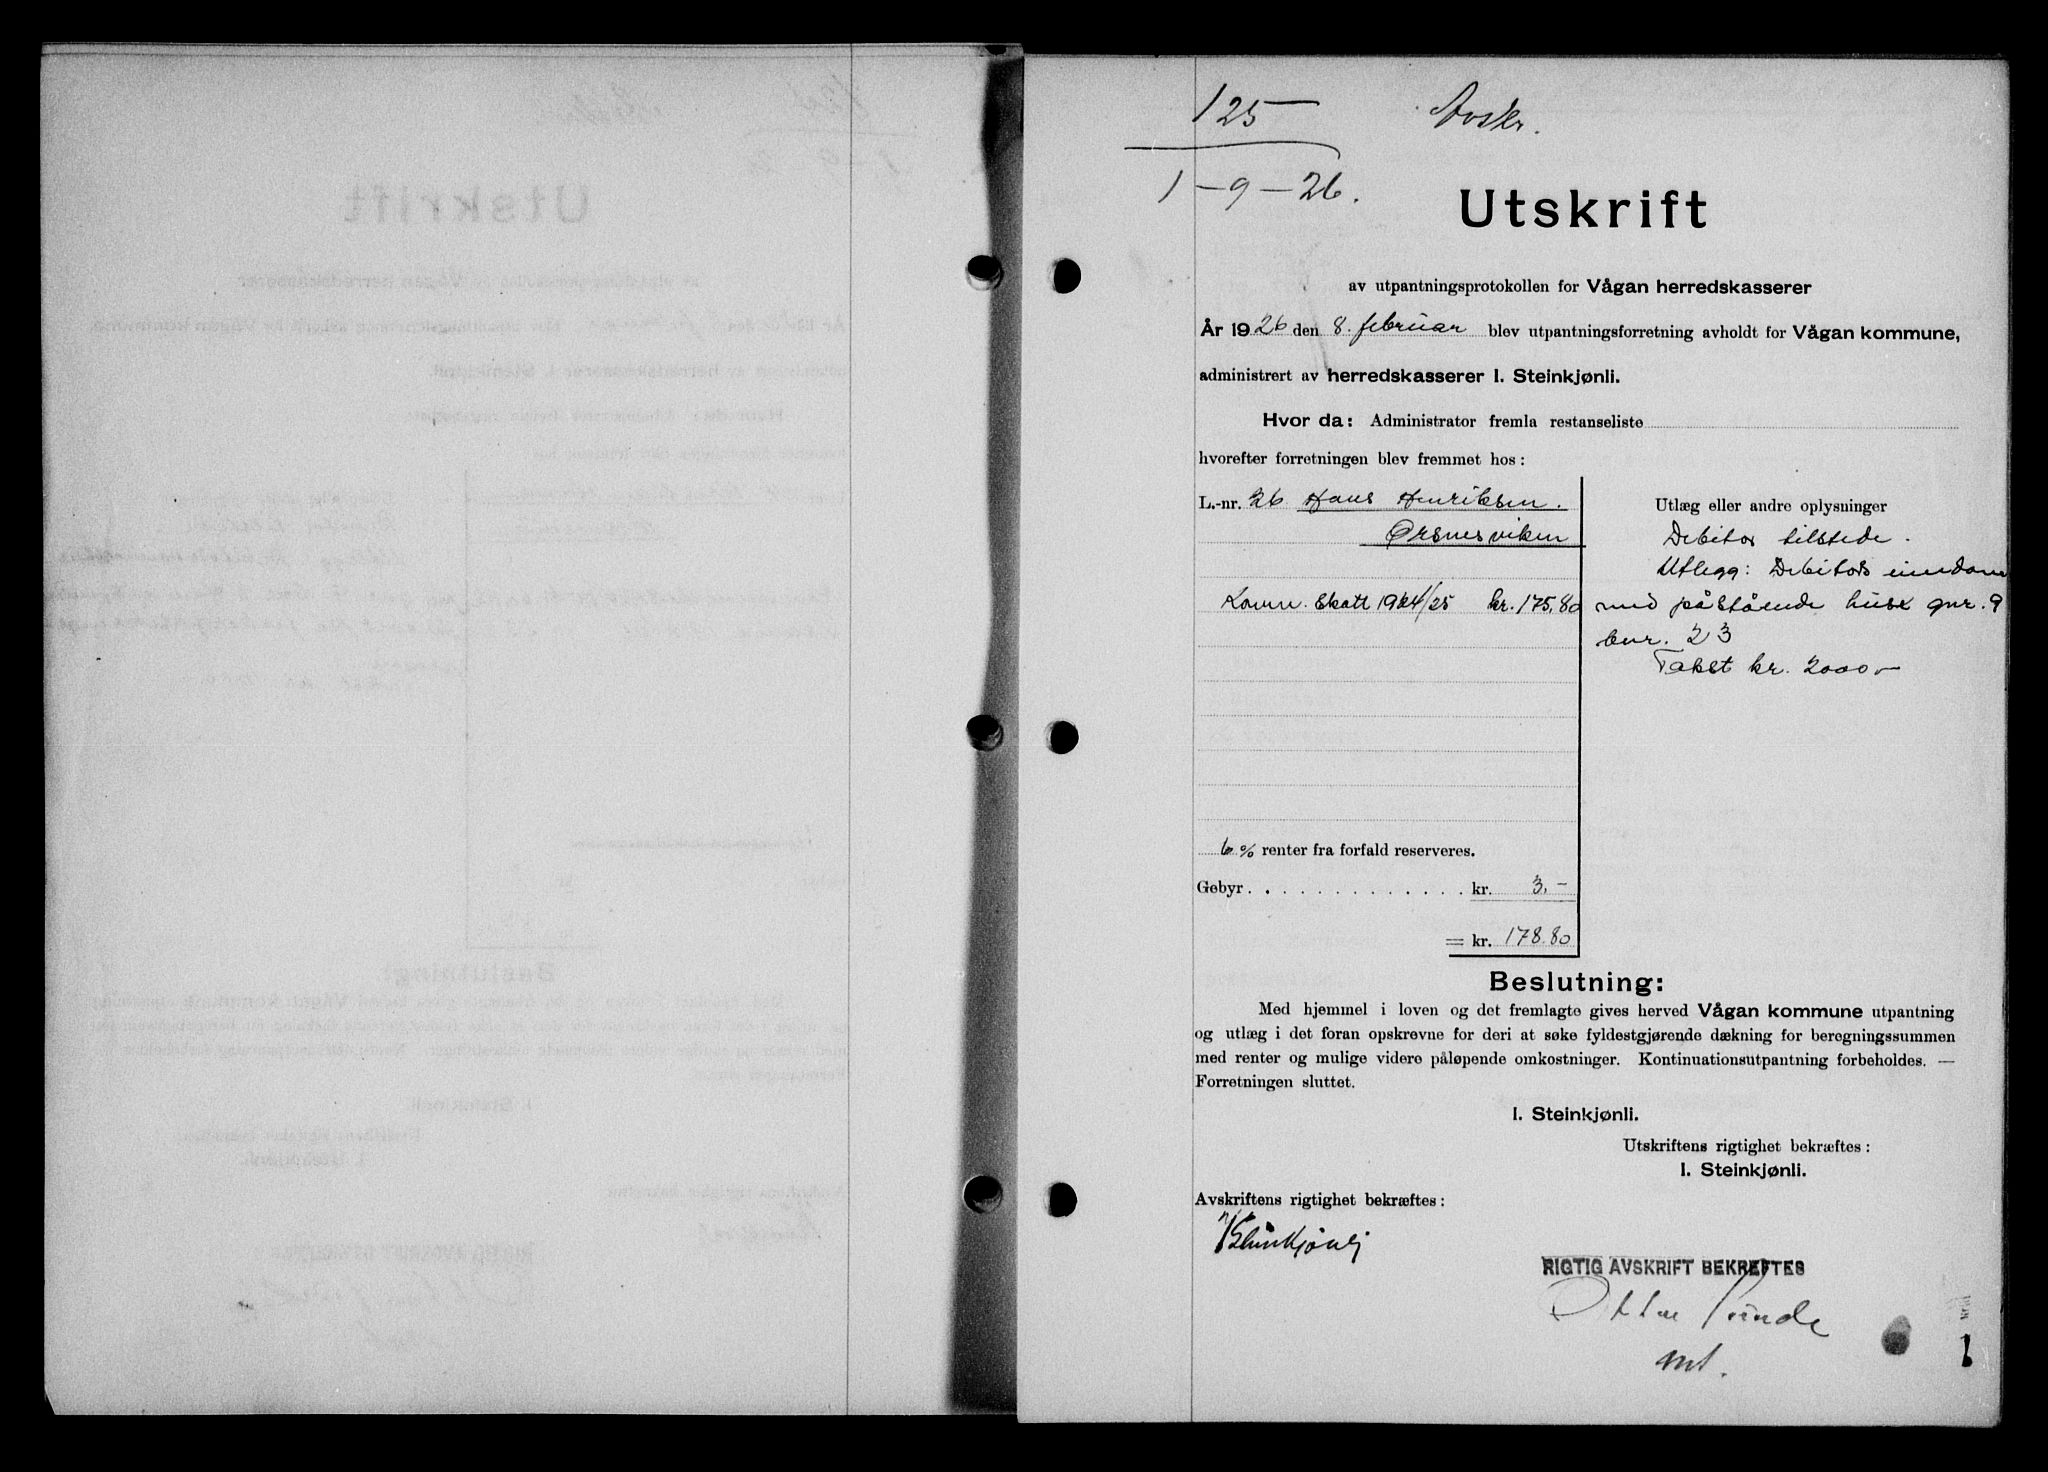 125 Avskr.
1-9-26.
Utskrift
av utpantningsprotokollen for Vågan herredskasserer
År 1926 den 8. februar blev utpantningsforretning avholdt for Vågan kommune,
administrert av herredskasserer I. Steinkjønli.
Hvor da: Administrator fremla restanseliste
hvorefter forretningen blev fremmet hos:
L.-nr. 26 Hans Henriksen.
Ørsnesviken
Komm. skatt 1924/25 kr. 175,80
6 % renter fra forfald reserveres.
Gebyr . . . . . . . . . . . . . kr. 3.-
= kr. 178.80
Utlæg eller andre oplysninger
Debitor tilstede.
Utlegg: Debitors eiendom
med påstående huse gnr. 9
bnr. 23
Takst kr. 2000-
Beslutning:
Med hjemmel i loven og det fremlagte gives herved Vågan kommune utpantning
og utlæg i det foran opskrevne for deri at søke fyldestgjørende dækning for beregningssummen
med renter og mulige videre påløpende omkostninger. Kontinuationsutpantning forbeholdes. —
Forretningen sluttet.
I. Steinkjønli.
Utskriftens rigtighet bekræftes:
I. Steinkjønli.
Avskriftens rigtighet bekræftes:
Steinkjønli
RIGTIG AVSKRIFT BEKREFTES